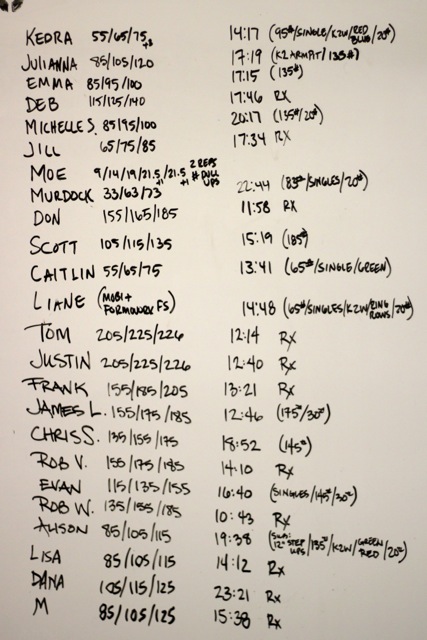 KEDRA 55/65/75+8 14:17 (95#/SINGLE/K2W/RED BLUE/20#)
JULIANNA 85/105/120 17:19 (K2ARMPIT/135#)
EMMA 85/95/100 17:15 (135#)
DEB 115/125/140 17:46 RX
MICHELLE S. 85/95/100 20:17 (135#/20#)
JILL 65/75/85 17:34 RX
MOE 9/14/19/21.5+1/21.5+1 2 REPS # PULL UPS 22:44 (83#/SINGLES/20#)
MURDOCK 33/63/73 11:58 RX
DON 155/165/185
SCOTT 105/115/135 15:19 (185#)
CAITLIN 55/65/75 13:41 (65#/SINGLE/GREEN)
LIANE (MOBI+ FS) 14:48 (65#/SINGLES/K2W/RING ROWS/20#)
TOM 205/225/226 12:14 RX
JUSTIN 205/225/226 12:40 RX
FRANK 155/185/205 13:21 RX
JAMES L. 155/175/185 12:46 (175#/30#)
CHRIS S. 135/155/175 18:52 (145#)
ROB V. 155/175/185 14:10 RX
EVAN 115/135/155 16:40 (SINGLES/145#/30#)
ROB W. 135/155/185 10:43 RX
ALISON 85/105/115 19:38 (12" STEP UPS/135#/K2W/GREEN RED/20#)
LISA 85/105/115 14:12 RX
DANA 105/115/125 23:21 RX
M 85/105/125 15:38 RX